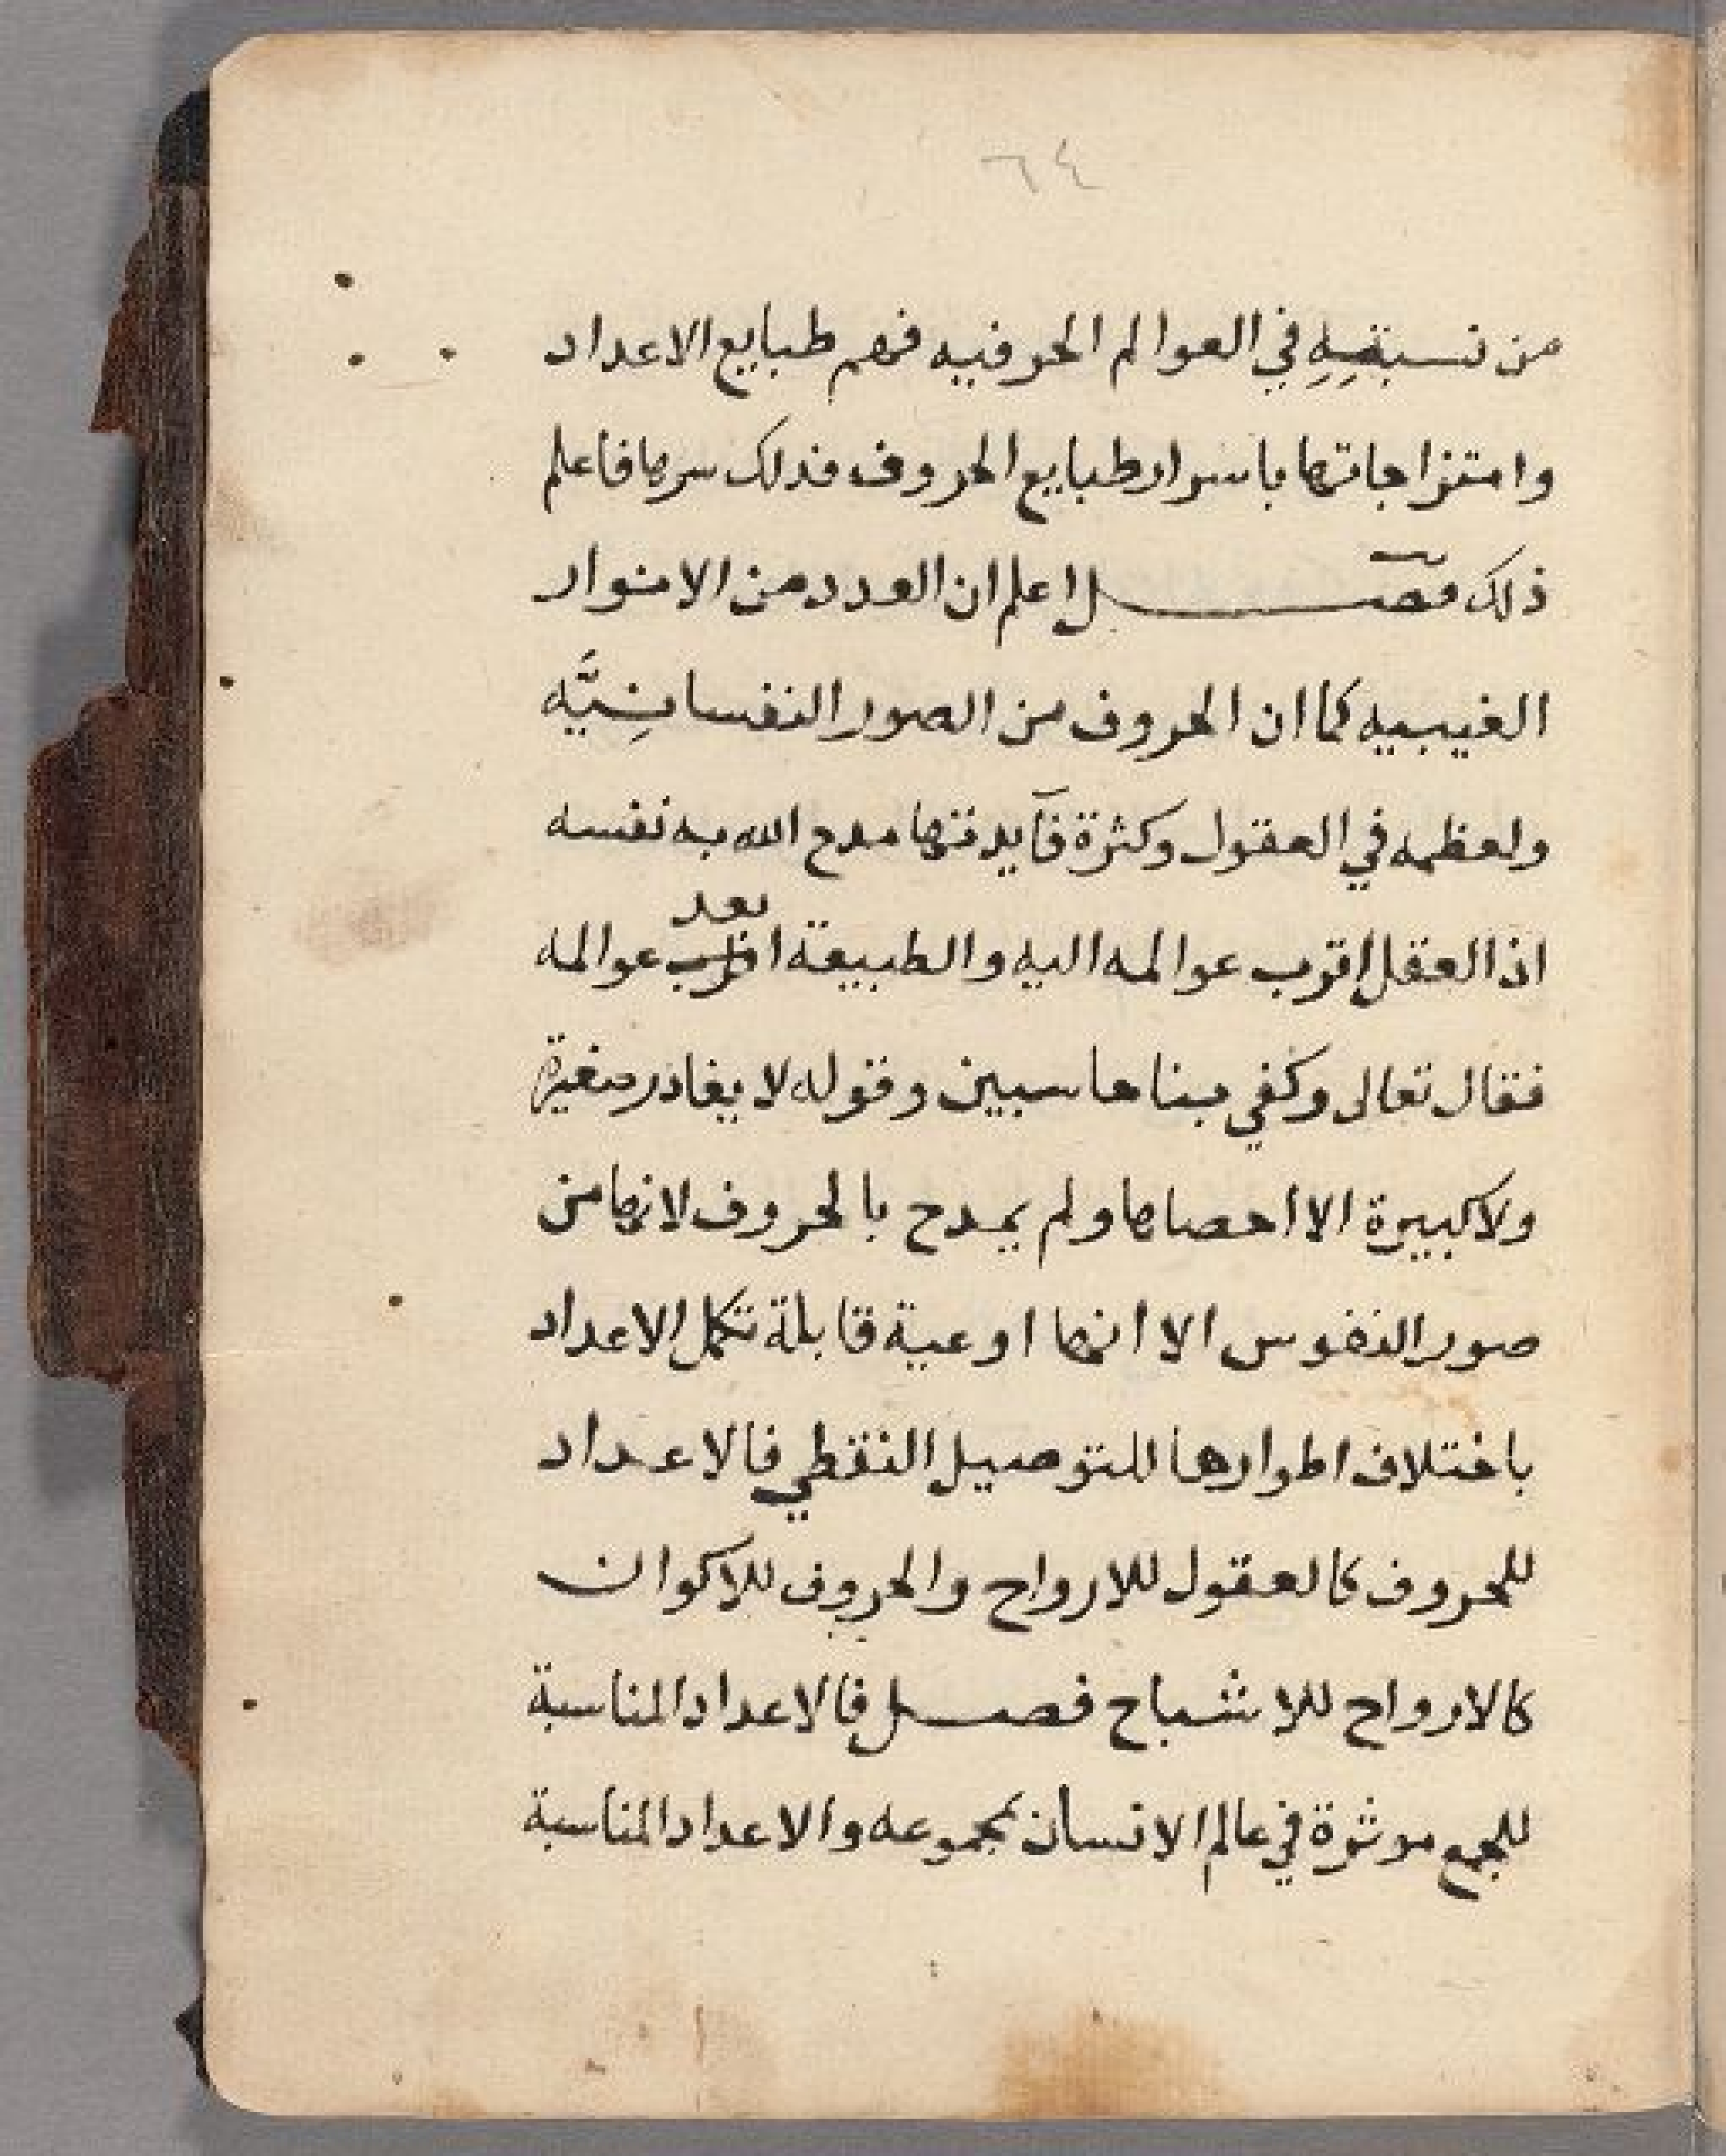 ٦٤
من نسبة في العوالم الحرفيه فهم طبايع الاعداد
وامتزاجاتها باسرار طبايع الحروف فذلك سرها فاعلم
ذلك فصل اعلم ان العدد من الانوار
الغيبيه كما ان الحروف من الصور النفسانِيَّه
ولعظمه في العقول وكثرة فآيدتها مدح الله به نفسه
بعد
اذ العقل اقرب عوالمه اليه والطبيعة اقرب عوالمه
فقال تعالى وكفي بنا حاسبين وقوله لا يغادر صغيرة
ولا كبيرة الا احصاها ولم يمدح بالحروف لانها من
صور النفوس الا انها اوعية قابلة تكمل الاعداد
باختلاف اطوارها للتوصيل النقطي فالاعداد
للحروف كالعقول للارواح والحروف للاكوان
كالارواح للاشباح فصل فالاعداد المناسبة
للجمع موثرة في عالم الانسان بمجموعه والاعداد المناسبة